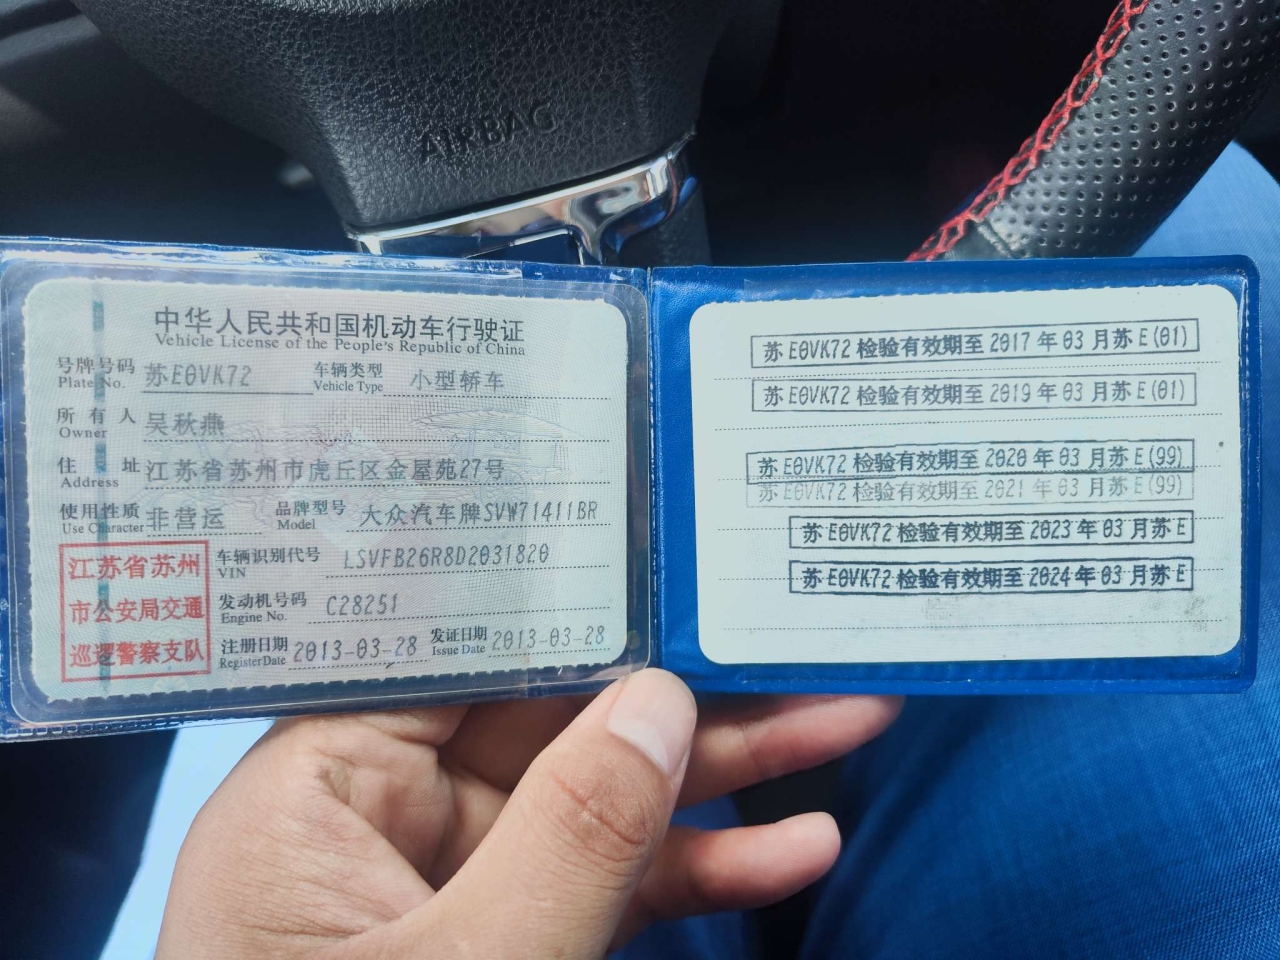 AIRBAG
中华人民共和国机动车行驶证
Vehicle License of the People's Republic of China
号牌号码 苏E0VK72 车辆类型 小型轿车
Plate No. Vehicle Type
所有人 吴秋燕
Owner
住址 江苏省苏州市虎丘区金屋苑27号
Address
使用性质 非营运 品牌型号 大众汽车牌SVW71411BR
Use Character Model
江苏省苏州
市公安局交通
巡逻警察支队
车辆识别代号 LSVFB26R8D2031820
VIN
发动机号码 C28251
Engine No.
注册日期 2013-03-28 发证日期 2013-03-28
Register Date Issue Date
苏E0VK72 检验有效期至 2017 年 03 月苏 E(01)
苏E0VK72 检验有效期至 2019 年 03 月苏 E(01)
苏E0VK72 检验有效期至 2020 年 03 月苏 E(99)
苏E0VK72 检验有效期至 2021 年 03 月苏 E(99)
苏E0VK72 检验有效期至 2023 年 03 月苏 E
苏E0VK72 检验有效期至 2024 年 03 月苏 E